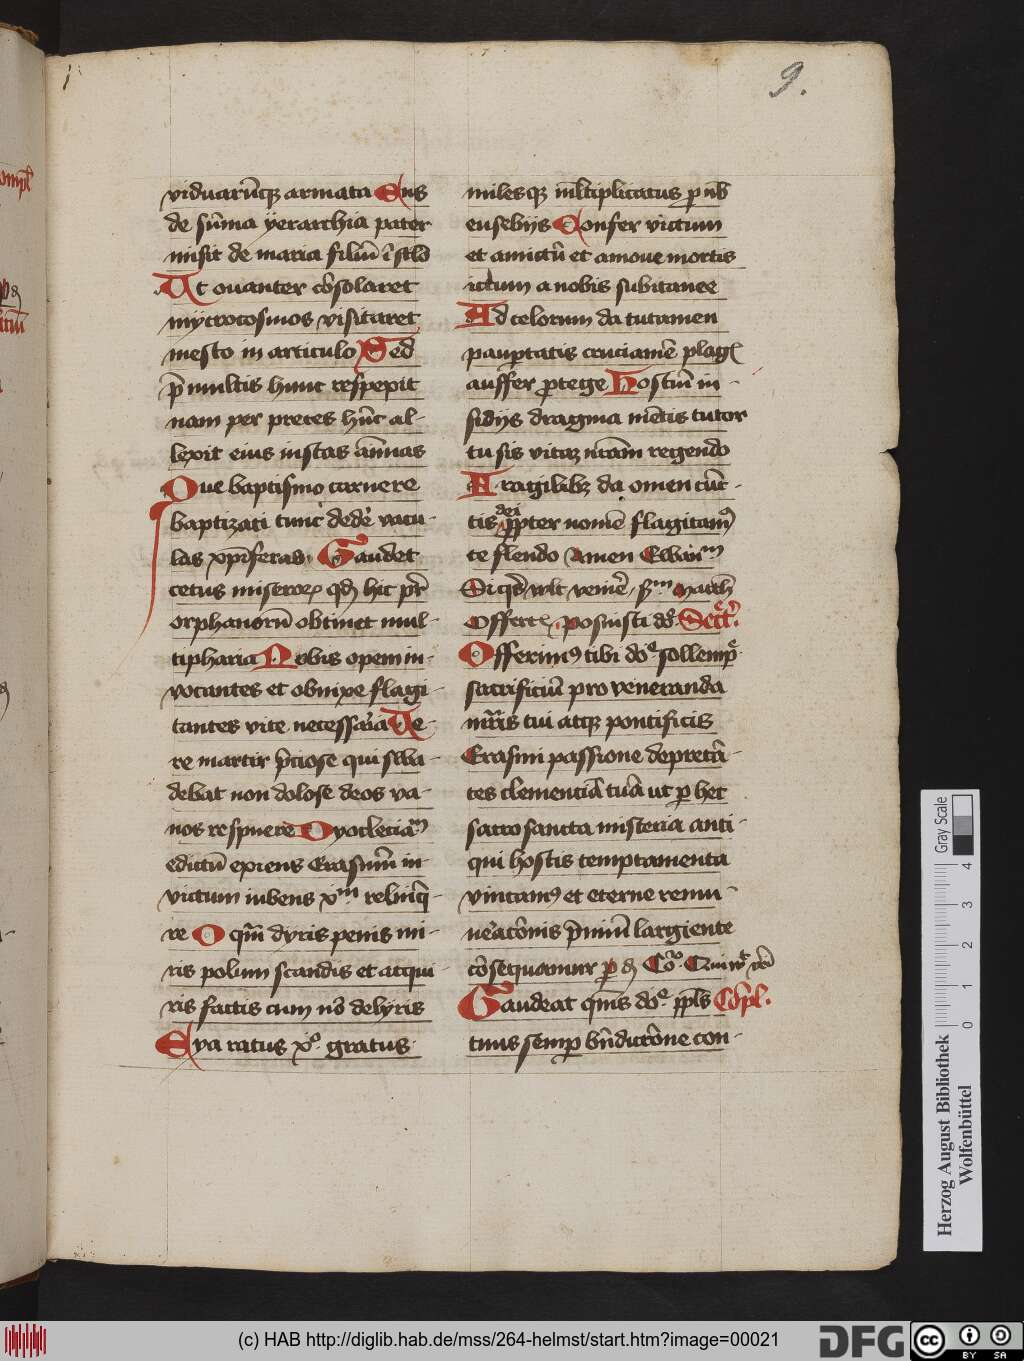 9.
viduarūqꝫ armata Ens
de sūma yerarchia pater
misit de maria filiū ī
Ut ouanter cōsolaret
mycrocosmos visitaret
mesto in articulo Sed
p̄ multis hunc respepit
nam per preces hūc al-
lexit eius iustas āimas
Que baptismo carnere
baptizati tunc dedē vacu-
las xpīferas Gaudet
cetus miseroꝝ qđ hic pr̄
orphanorū obtinet mul-
tipharia Nobis opem in-
vocantes et obnixe flagi-
tantes vite necessaria Ve-
re martir p̄ciose qui
debat non dolose deos va-
nos respuere Dyocleciaꝫ
edictū expiens Erasmū in-
victum iubens xᵐ relinq̄-
re O qm̄ dyris penis mi-
ris polum scandis et acqui-
ris factis cum nō delyris
Eya ratus xº gratus
milesqꝫ mltiplicatus ꝓ nob
eusebijs Confer victum
et amictū et amoue mortis
ictum a nobis subitanee
Ad celorum da tutamen
pauꝑtatis cruciamē plagꝭ
auffer ꝓtege Hostiū in-
sidijs dragma mētis tutor
tu sis vitaꝫ nrām regendo
Fragilibꝫ da omen cūc-
tis dei ꝓpter nomē flagitamꝰ
te flendo Amen Ewāiᵐ
Si qs vlt venire sᵐ Math
Offertᵉ posuisti dº Secrᵗ.
Offerimꝰ tibi dōᵉ sollempᵉ
sacrificiū pro veneranda
mr̄is tui atqꝫ pontificis
Erasmi passione depreca-
tes clemenciā tuā ut ꝑ hec
sacro sancta misteria anti-
qui hostis temptamenta
vincamꝰ et eterne remu-
neracōnis p̄miū largiente
cōsequamur ꝑ đ Cōº. Qui
Gaudeat qms dōᵉ ppls Cōpl.
tuus semꝑ bn̄dicōne con-
Gray Scale
0 1 2 3 4
Herzog August Bibliothek
Wolfenbüttel
(c) HAB http://diglib.hab.de/mss/264-helmst/start.htm?image=00021
DFG
cc
BY SA